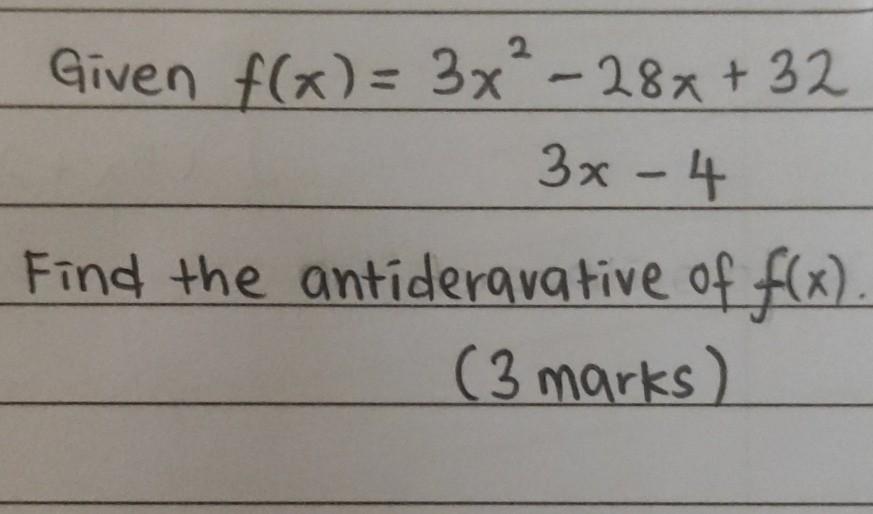 Given f(x) = 3x² - 28x + 32
3x - 4
Find the antideravative of f(x).
(3 marks)